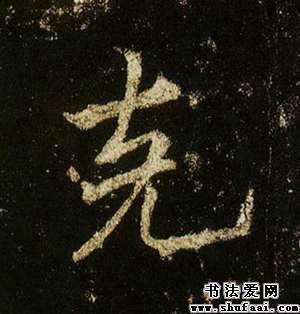 克
书法爱网
www.shufaai.com